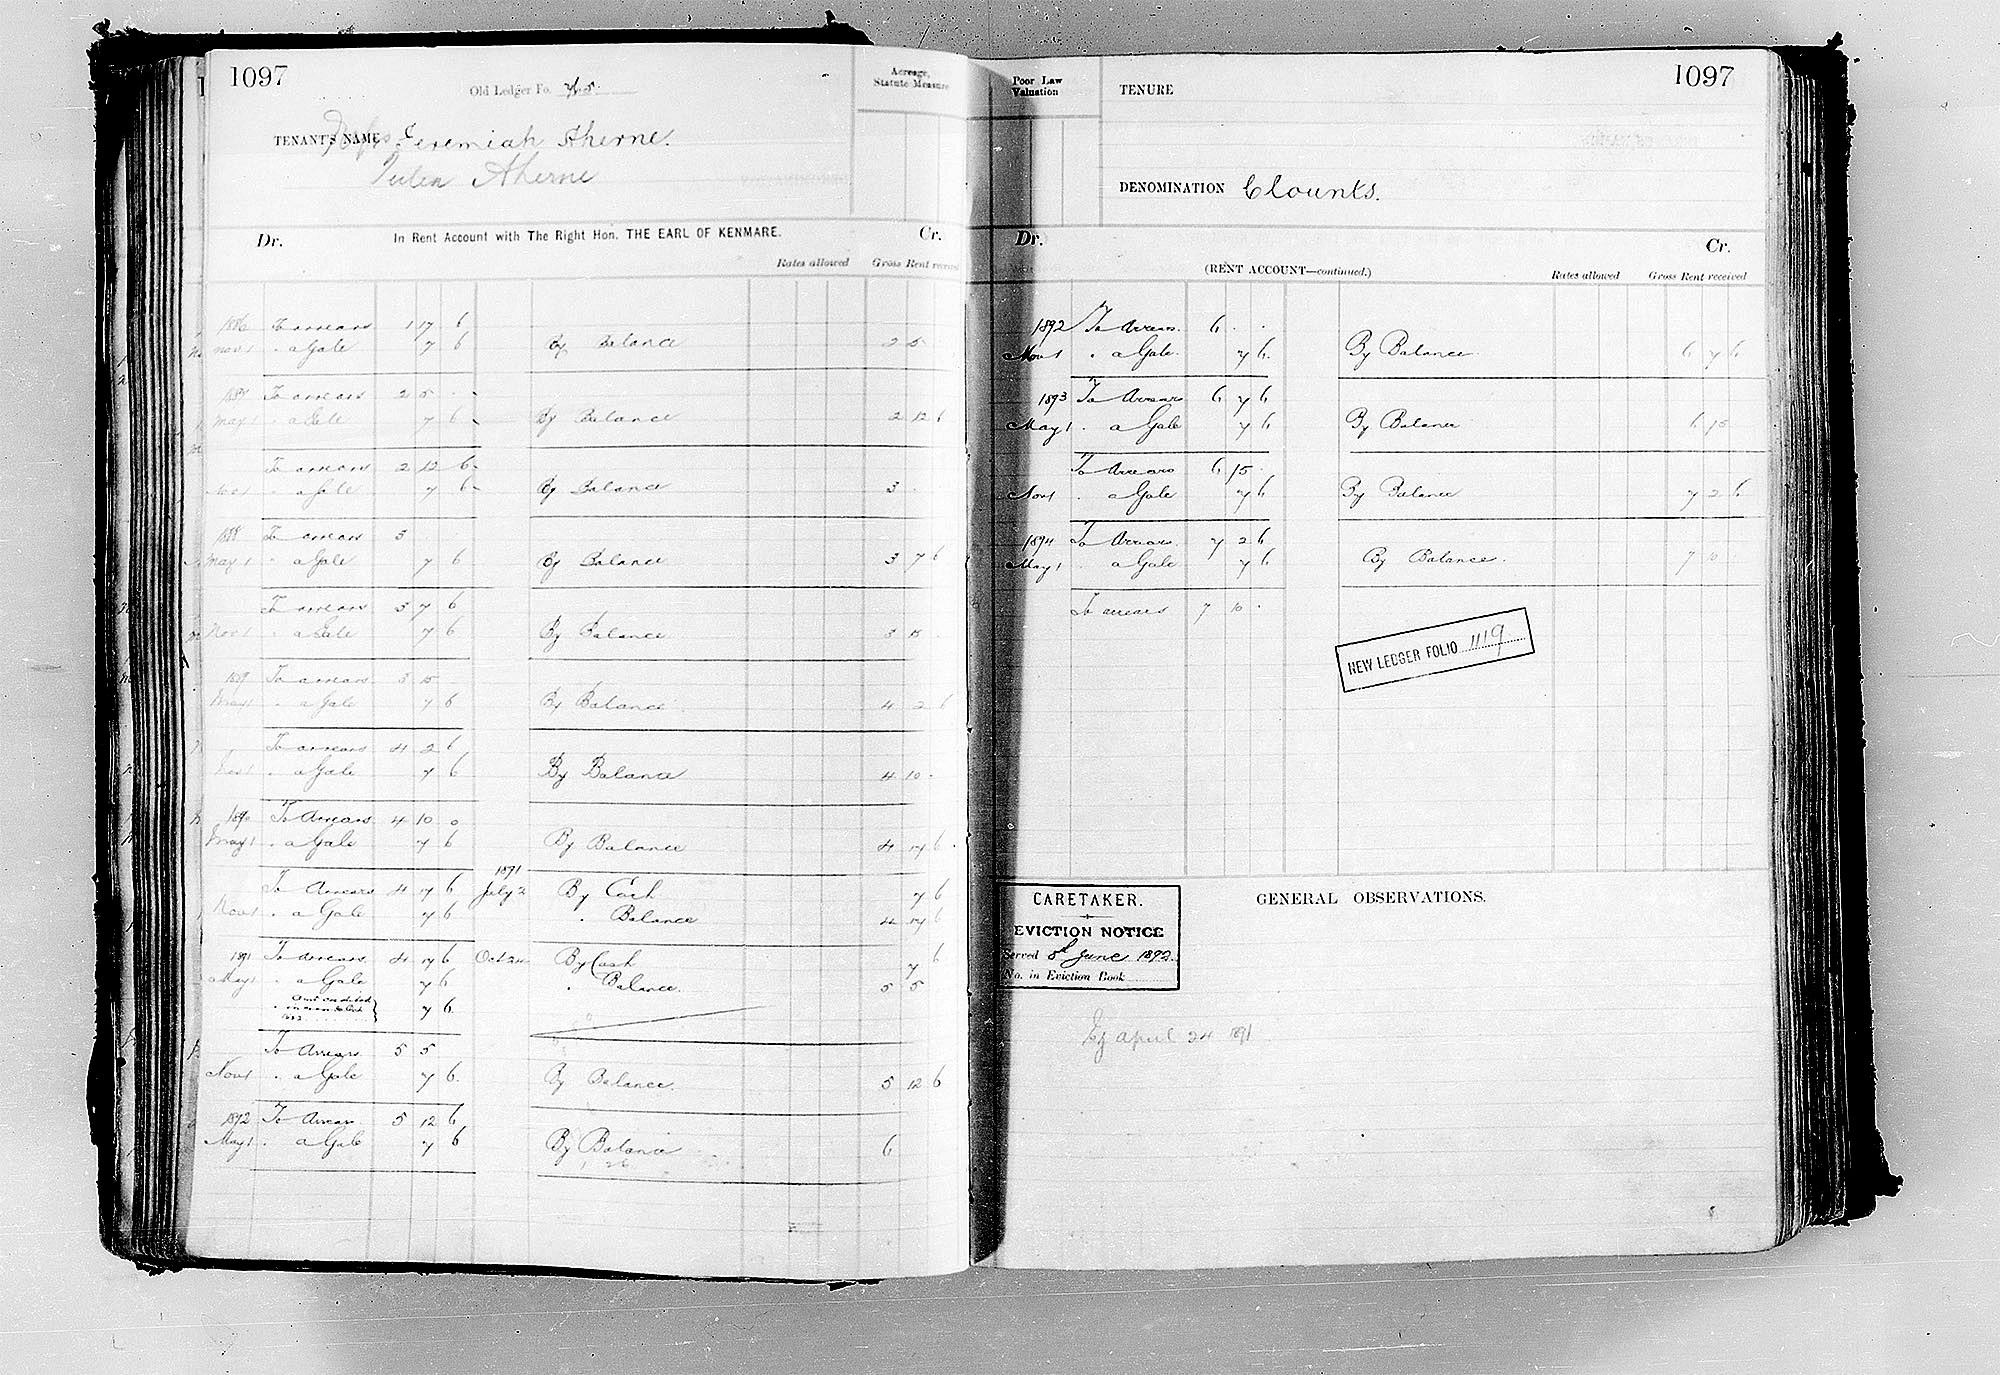 1097
Old Ledger Fo.
Acreage, Statute Measure
TENANT'S NAME Jeremiah Aherne.
Aherne
Dr. In Rent Account with The Right Hon. THE EARL OF KENMARE. Cr.
Rates allowed Gross Rent received
1886 To arrears 1 17 6
Nov 1 " a Gale 7 6 By Balance 2 5
1887 To arrears 2 5
May 1 " a Gale 7 6 By Balance 2 12 6
To arrears 2 12 6
Nov 1 " a Gale 7 6 By Balance 3
1888 To arrears 3
May 1 " a Gale 7 6 By Balance 3 7 6
To arrears 3 7 6
Nov 1 " a Gale 7 6 By Balance 3 15
1889 To arrears 3 15
May 1 " a Gale 7 6 By Balance 4 2 6
To arrears 4 2 6
Nov 1 " a Gale 7 6 By Balance 4 10
1890 To Arrears 4 10 0
May 1 " a Gale 7 6 By Balance 4 17 6
To Arrears 4 17 6 1891 July 2 By Cash 7 6
Nov 1 " a Gale 7 6 " Balance 4 17 6
1891 To Arrears 4 17 6 Oct 24 By Cash 7 6
May 1 " a Gale 7 6 " Balance. 5 5
7 6
To Arrears 5 5
Nov 1 " a Gale 7 6 By Balance. 5 12 6
1892 To Arrears 5 12 6
May 1 " a Gale 7 6 By Balance 6
1097
Poor Law Valuation
TENURE
DENOMINATION Clounts.
Dr. (RENT ACCOUNT—continued.) Cr.
Rates allowed Gross Rent received
1892 To Arrears. 6 . .
Nov 1 " a Gale. 7 6 By Balance 6 7 6
1893 To Arrears 6 7 6
May 1 " a Gale 7 6 By Balance 6 15
To Arrears 6 15
Nov 1 " a Gale 7 6 By Balance 7 2 6
1894 To Arrears. 7 2 6
May 1 " a Gale 7 6 By Balance. 7 10
To arrears 7 10 .
NEW LEDGER FOLIO 1119
CARETAKER.
EVICTION NOTICE
Served June 1892
No. in Eviction Book
GENERAL OBSERVATIONS.
April 24 1891